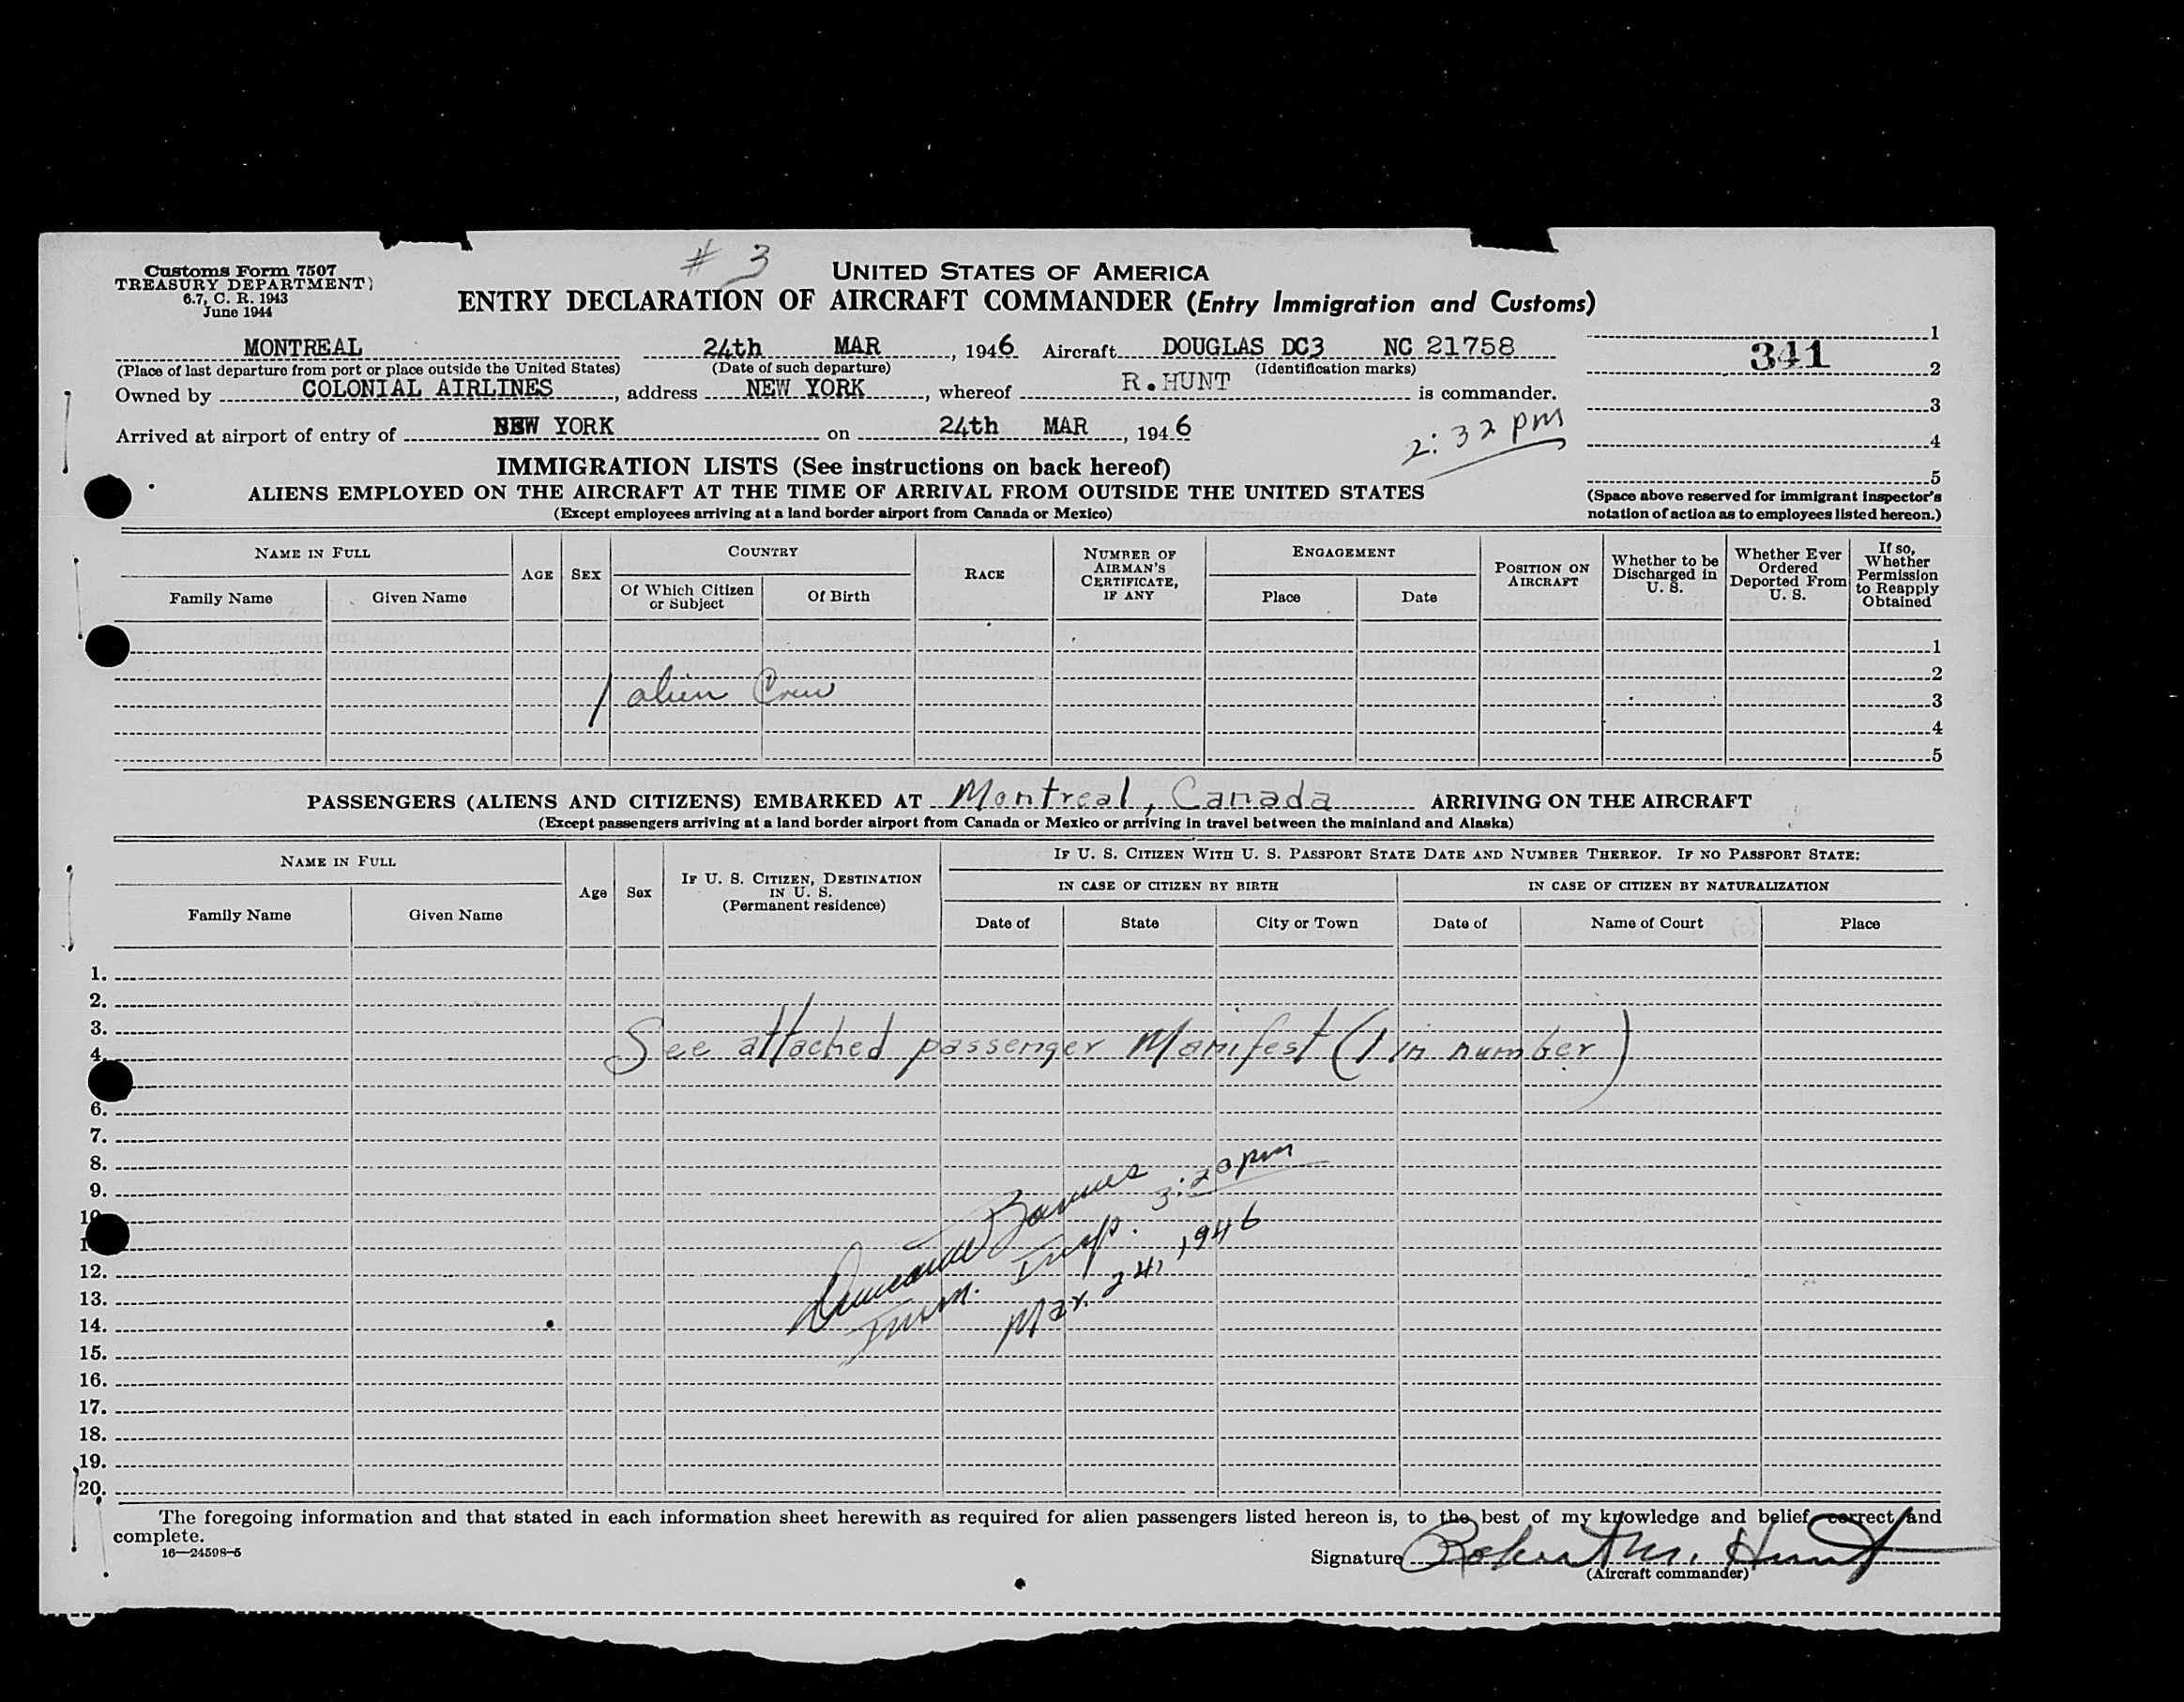 # 3
Customs Form 7507
TREASURY DEPARTMENT)
6.7, C. R. 1943
June 1944
UNITED STATES OF AMERICA
ENTRY DECLARATION OF AIRCRAFT COMMANDER (Entry Immigration and Customs)
MONTREAL 24th MAR, 1946 Aircraft DOUGLAS DC3 NC 21758
(Place of last departure from port or place outside the United States) (Date of such departure) (Identification marks)
Owned by COLONIAL AIRLINES, address NEW YORK, whereof R.HUNT is commander.
Arrived at airport of entry of NEW YORK on 24th MAR, 1946
2:32 pm
1
341
2
3
4
5
(Space above reserved for immigrant inspector's
notation of action as to employees listed hereon.)
IMMIGRATION LISTS (See instructions on back hereof)
ALIENS EMPLOYED ON THE AIRCRAFT AT THE TIME OF ARRIVAL FROM OUTSIDE THE UNITED STATES
(Except employees arriving at a land border airport from Canada or Mexico)
NAME IN FULL
Family Name Given Name
AGE
SEX
COUNTRY
Of Which Citizen
or Subject
Of Birth
RACE
NUMBER OF
AIRMAN'S
CERTIFICATE,
IF ANY
ENGAGEMENT
Place Date
POSITION ON
AIRCRAFT
Whether to be
Discharged in
U. S.
Whether Ever
Ordered
Deported From
U. S.
If so,
Whether
Permission
to Reapply
Obtained
1
2
/ alien Crew
3
4
5
PASSENGERS (ALIENS AND CITIZENS) EMBARKED AT Montreal, Canada ARRIVING ON THE AIRCRAFT
(Except passengers arriving at a land border airport from Canada or Mexico or arriving in travel between the mainland and Alaska)
NAME IN FULL
Family Name Given Name
Age
Sex
IF U. S. CITIZEN, DESTINATION
IN U. S.
(Permanent residence)
IF U. S. CITIZEN WITH U. S. PASSPORT STATE DATE AND NUMBER THEREOF. IF NO PASSPORT STATE:
IN CASE OF CITIZEN BY BIRTH IN CASE OF CITIZEN BY NATURALIZATION
Date of State City or Town Date of Name of Court Place
1.
2.
3.
4.
See attached passenger Manifest (1 in number)
6.
7.
8.
9.
10
1
12.
13.
14.
15.
16.
17.
18.
19.
20.
3:20 pm
Imm. Insp.
Mar. 24, 1946
The foregoing information and that stated in each information sheet herewith as required for alien passengers listed hereon is, to the best of my knowledge and belief, correct and
complete.
16—24598-5
Signature Robert M. Hunt
(Aircraft commander)